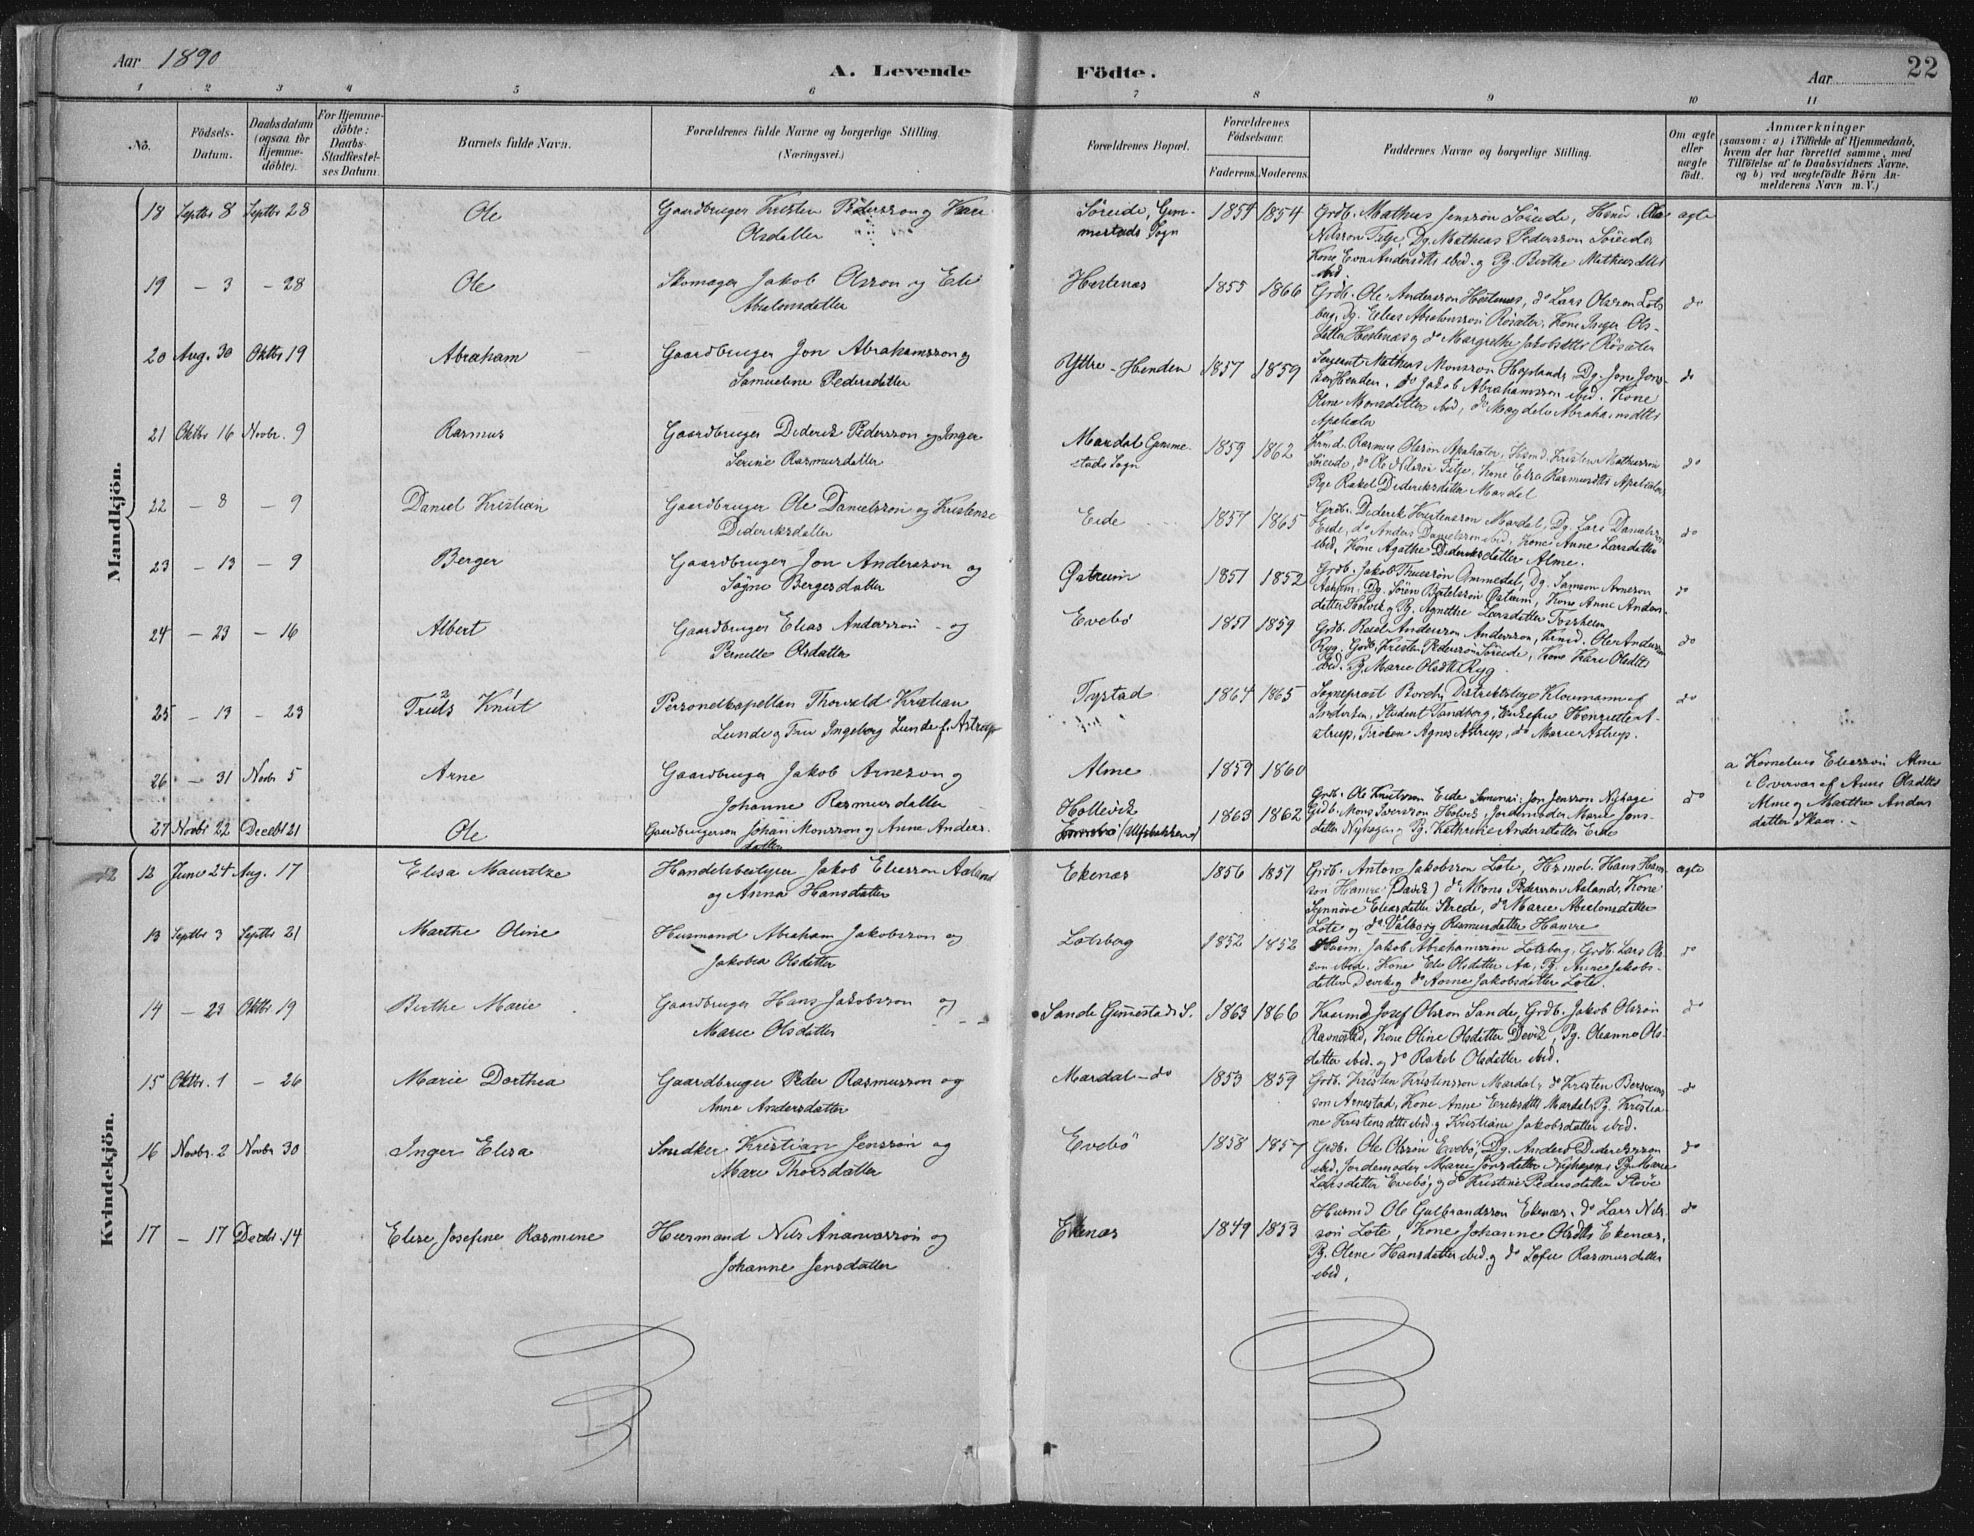 Aar 1890
A. Levende Födte.
Aar 22
1 2 3 4 5 6 7 8 9 10 11
No.
Födsels-Datum.
Daabsdatum (ogsaa for Hjemme-döbte).
For Hjemme-döbte: Daabs-Stadfæstel-ses Datum.
Barnets fulde Navn.
Forældrenes fulde Navne og borgerlige Stilling. (Næringsvei.)
Forældrenes Bopæl.
Forældrenes Födselsaar.
Faderens. Moderens.
Faddernes Navne og borgerlige Stilling.
Om ægte eller uægte födt.
Anmærkninger
(saasom: a) i Tilfælde af Hjemmedaab, hvem der har forrettet samme, med Tilföielse af to Daabsvidners Navne, og b) ved uægtefödte Börn An-melderens Navn m. V.)
Mandkjön.
18 Septbr 8 Septbr 28 Ole Gaardbruger Kristen Pedersson og Kari
Olsdatter
Söreide, Gim-
mestads Sogn
1854 1854 Grdb. Mathias Jensson Söreide, Ole
Nilsson Tilje, Pg. Mathias Pedersson Söreide,
Kone Eva Andersdtt ibid. og Pg. Berthe Mathiasdtt
ibid.
ægte
19 – 3 – 28 Ole Skomager Jakob Olsson og Eli
Abelonsdatter
Hestenæs 1855 1866 Grdb. Ole Andersson Hestenæs, do Lars Olsson Lots-
berg, Pg. Elias Röset, Kone Inger Ols-
datter Hestenæs og do Margrethe Jakobsdtt
do
20 Aug. 30 Oktbr 19 Abraham Gaardbruger Jon Abrahamsson og
Samueline Pedersdatter
Yttre-Henden 1857 1859 Sergeant Mathias Monsson Hopland, Pg. Jon Jons-
son Henden, do Jakob Abrahamsson ibid. Kone
Oline Monsdatter ibid, do Magdele Abrahamsdtt
Apalsæter
do
21 Oktbr 16 Novbr. 9 Rasmus Gaardbruger Diderik Pedersson og Inger
Serine Rasmusdatter
Mardal Gimme-
stads Sogn
1859 1862 Rasmus Olsson Apalsæter, Kristen Mathiasson
Söreide, do Ole Nilsson Tilje, Kone Elsa Rasmusdtt Apalsæter
Pige Rakel Dideriksdatter Mardal
do
22 – 8 – 9 Daniel Kristian Gaardbruger Ole Danielsson og Kristense
Dideriksdatter
Eide 1857 1865 Grdbr. Diderik Kristensson Mardal, Pg. Lars Danielsson
Eide, do Anders Danielsson ibid, Kone Anne Larsdatter
ibid, Kone Agathe Dideriksdatter Alme.
do
23 – 13 – 9 Berger Gaardbruger Jon Andersson og
Sögne Bergesdatter
Östreim 1851 1852 Grdb. Jakob Thuesson Ommedal, Pg. Samson Arnesson
Pg. Sören Bertelsson Östreim, Kone Anne Anders-
datter Holvik og Pg. Agnethe Larsdatter
do
24 – 23 – 16 Albert Gaardbruger Elias Andersson og
Pernille Olsdatter
Evebö 1851 1859 Grdb. Andersson, Ole Andersson
Ryg, Grdb. Kristen Pedersson Söreide, Kone Kari Olsdtt
ibid. Pg. Marie Olsdtt Ryg.
do
25 – 13 – 23 Truls Knut Personelkapellan Thorvald Kristian
Lunde og Fru Ingeborg Lunde f. Astrup
Tystad 1864 1865 Sogneprest Borch, Distriktslæge Kloumann
Student Tandberg, Enkefru Henriette A-
strup, Fröken Agnes Astrup, do Marie Astrup.
do
26 – 31 Novbr 5 Arne Gaardbruger Jakob Arnesson og
Johanne Rasmusdatter
Alme 1859 1860
a Kornelius Eliasson Alme
i Overvær af Anne Olsdtt
Alme og Marthe Anders-
datter Skaar.
27 Novbr 22 Decbr 21 Ole Gaardbrugerson Johan Monsson og Anne Anders-
datter
Hollevik
(Ulfsbakken)
1863 1862 Grdb. Ole Knutsson Eide Jon Jensson Nyhage
Grdb. Mons Iversson Holvik, Jordemoder Marie Jons-
datter Nyhagen og Pg. Kathrine Andersdatter Eide
do
Kvindekjön.
12 12 Juni 24 Aug. 17 Elisa Mauritze Handelsbestyrer Jakob Eliesson Aaland
og Anna Hansdatter
Ekenæs 1856 1857 Grdb. Anton Jakobsson Lote, Hans Han-
son Hamre do Mons Pedersson Aaland, Kone
Synnöve Eliasdatter Skrede, do Marie Abelonsdatter
Lote og do Valborg Rasmusdatter Hamre
ægte
13 Septbr 3 Septbr 21 Marthe Oline Husmand Abraham Jakobsson og
Jakobea Olsdatter
Lotsberg 1852 1852 Husm. Jakob Abrahamsson Lotsberg, Grdb. Lars Ols-
son ibid. Kone Eli Olsdatter Aa, Pg. Anne Jakobs-
datter Devik og do Anne Jakobsdatter Lote.
do
14 – 23 Oktbr 19 Berthe Marie Gaardbruger Hans Jakobsson og
Marie Olsdatter
Sande Gimmestads S. 1863 1866 Josef Olsson Sande, Grdb. Jakob Olsson
Ravnestad, Kone Oline Olsdatter Devik, Pg. Oleanna Ols-
datter ibid. og do Rakel Olsdatter ibid.
do
15 Oktbr. 1 – 26 Marie Dorthea Gaardbruger Peder Rasmusson og
Anne Andersdatter
Mardal – do 1853 1859 Grdb. Kristen Kristensson Mardal, do Kristen
son Arnestad, Kone Anne Eriksdtt Mardal, Pg. Kristia-
ne Kristensdtt ibid. og Kristiane Jakobsdatter ibid.
do
16 Novbr. 2 Novbr 30 Inger Elisa Snedker Kristian Jensson og
Mari Thorsdatter
Evebö 1858 1857 Grdb. Ole Olsson Evebö, Pg. Anders Dideriksson
ibid. Jordemoder Marie Jonsdatter Nyhagen, Pg. Marie
Larsdatter Evebö, og do Kristine Pedersdatter Stöve
do
17 – 17 Decbr. 14 Elise Josefine Rasmine Husmand Nils Ananiasson og
Johanne Jensdatter
Ekenæs 1849 1853 Husmd Ole Gulbrandsson Ekenæs, do Lars Nils-
son Lote, Kone Johanne Olsdtt Ekenæs,
Pg. Oline Hansdatter ibid. og do Sofie Rasmusdatter
ibid.
do